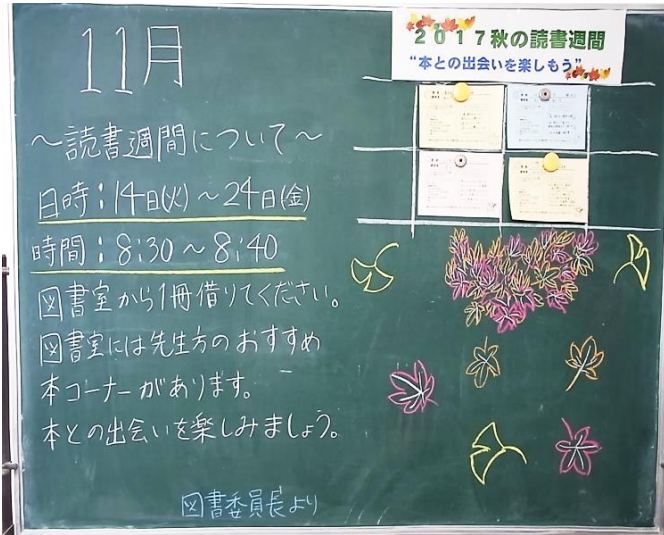 11月
～読書週間について～
日時：14日(火)～24日(金)
時間：8:30～8:40
図書室から1冊借りてください。
図書室には先生方のおすすめ
本コーナーがあります。
本との出会いを楽しみましょう。
図書委員長より
2017秋の読書週間
“本との出会いを楽しもう”